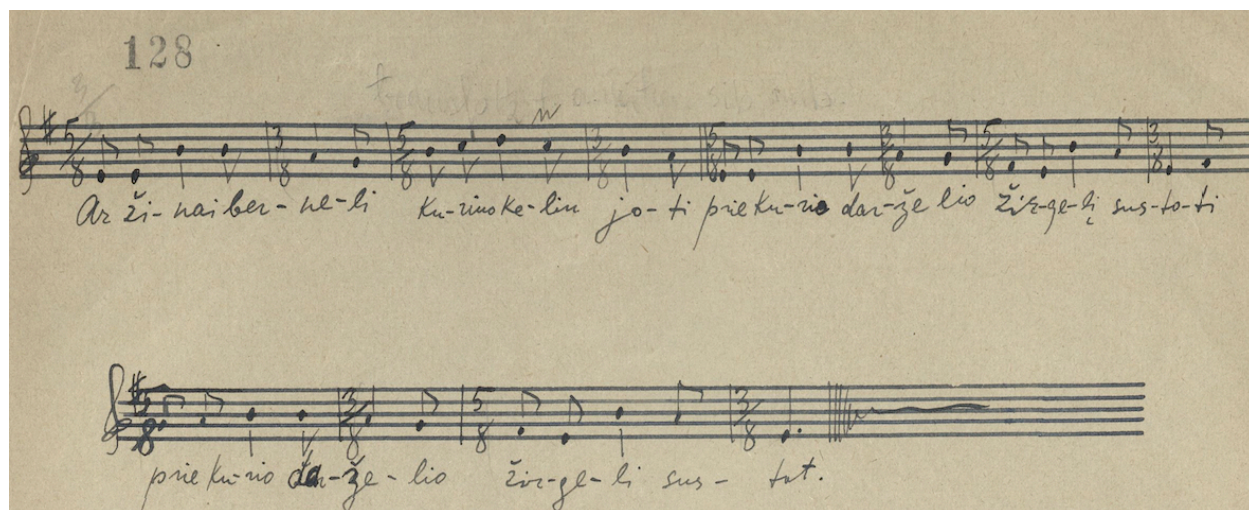 128
Ar ži-nai ber-ne-li ku-riuo ke-liu jo-ti prie ku-rio dar-že lio žir-ge-lį sus-to-ti
prie ku-rio dar-že-lio žir-ge-li sus- tot.